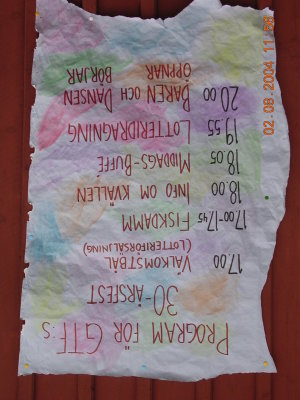 PROGRAM FÖR GTF:S
30-ÅRSFEST
17.00 VÄLKOMSTBÅL
(LOTTERIFÖRSÄLJNING)
17.00-17.45 FISKDAMM
18.00 INFO OM KVÄLLEN
18.05 MIDDAGS-BUFFÉ
19.55 LOTTERIDRAGNING
20.00 BAREN OCH DANSEN
ÖPPNAR BÖRJAR
02.08.2004 11:58